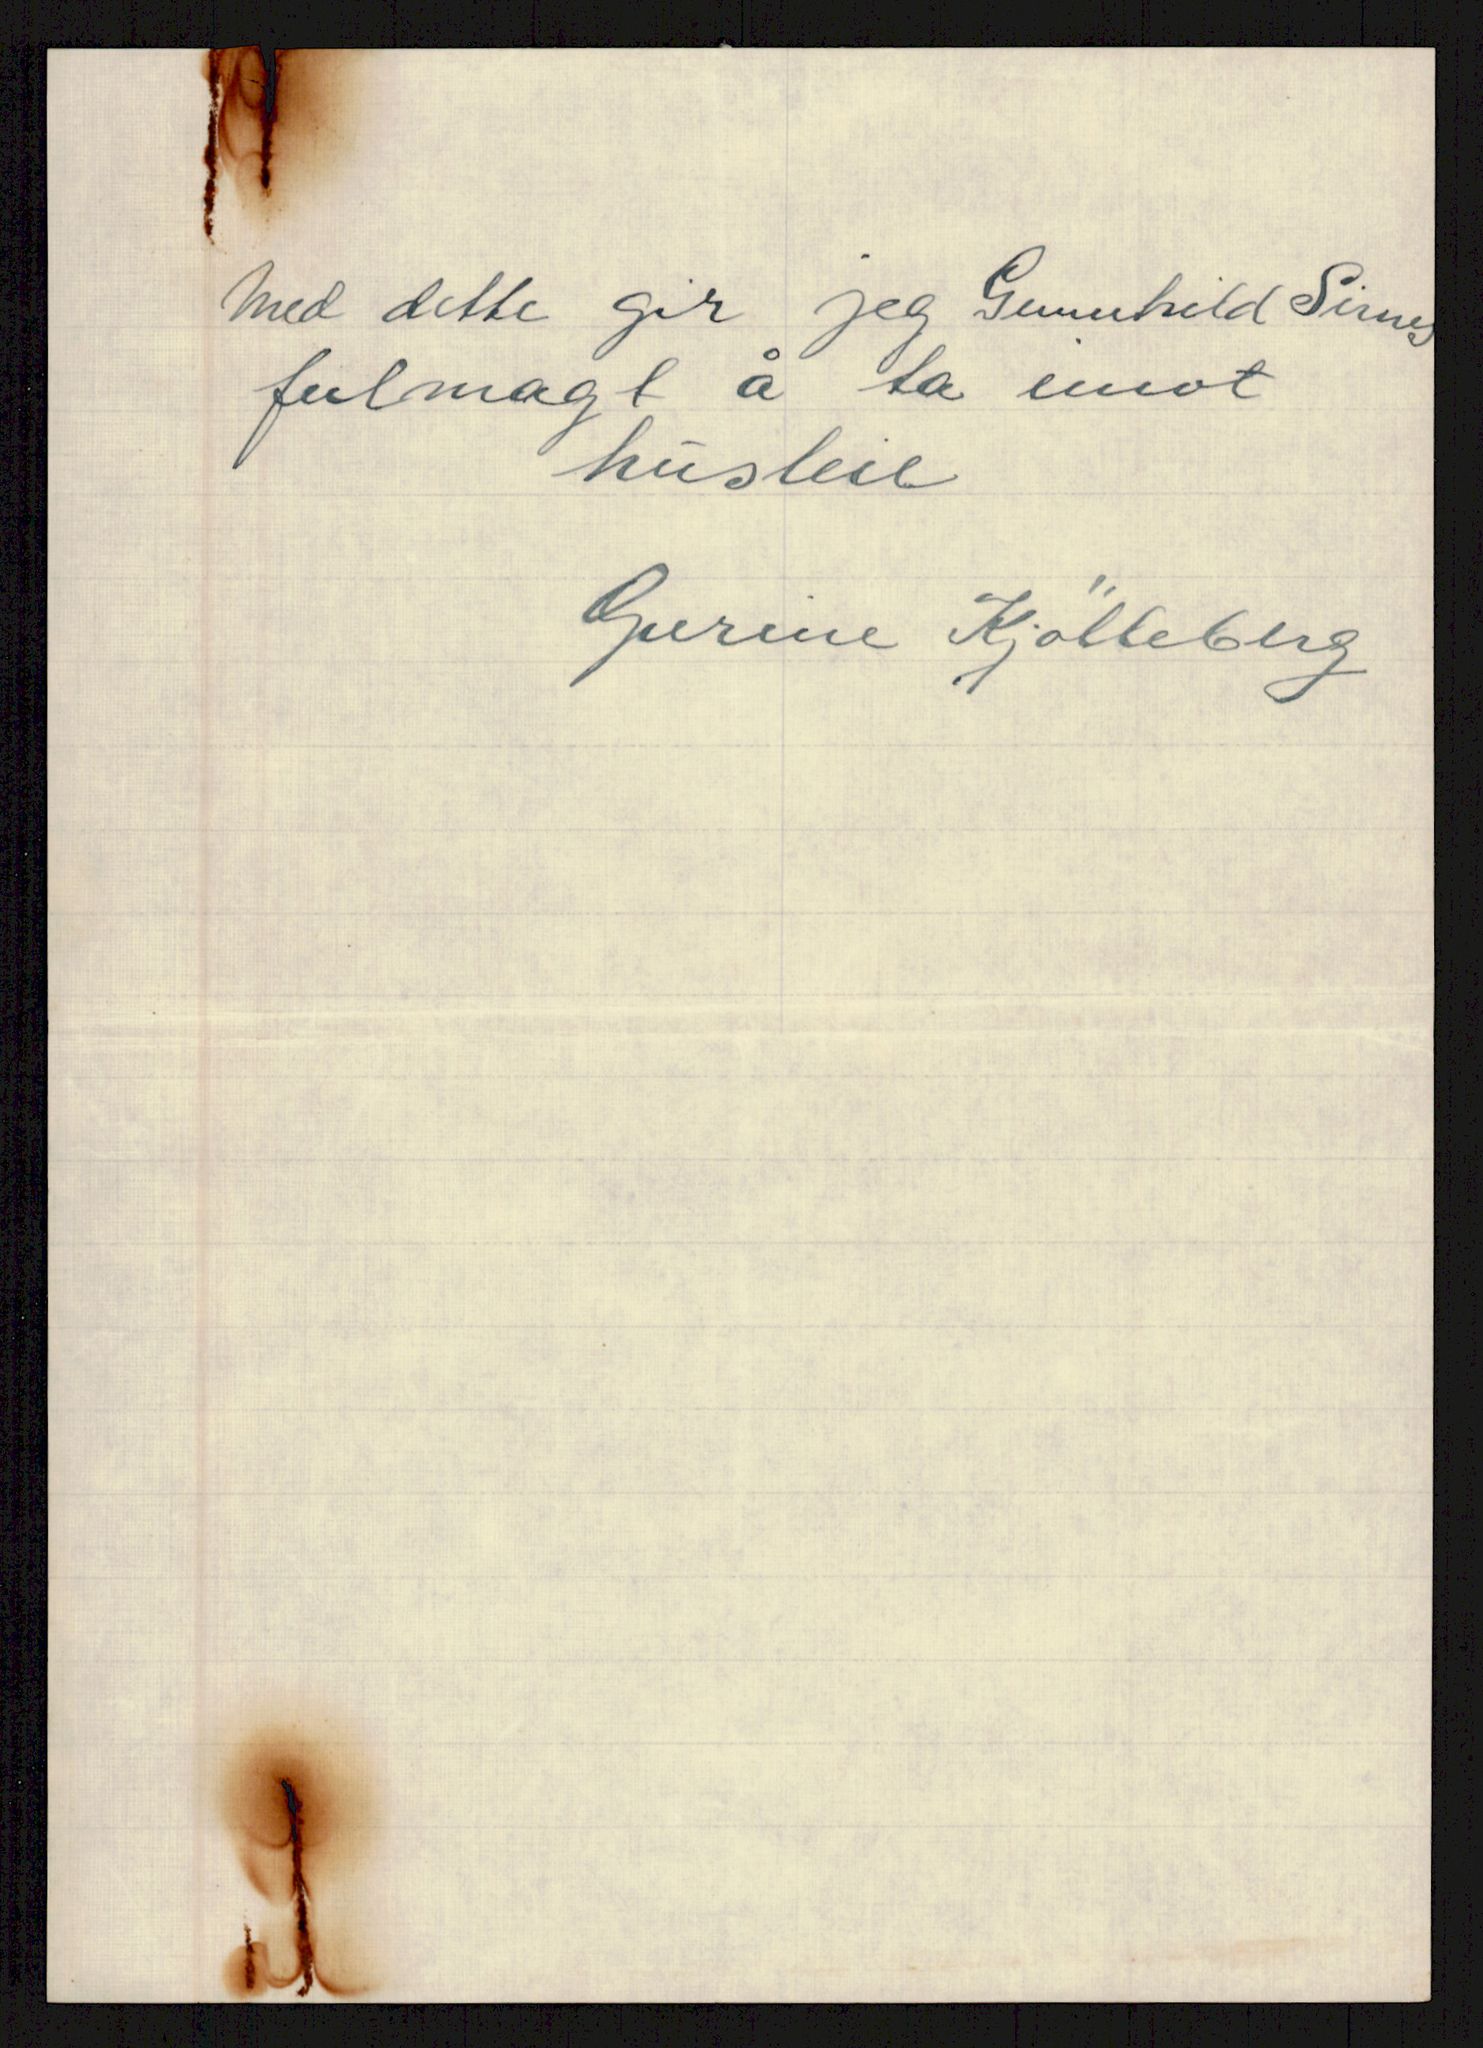 Med dette gir jeg Gunnhild Sirnes
fulmagt å ta imot
husleie
Gurine Kjölleberg